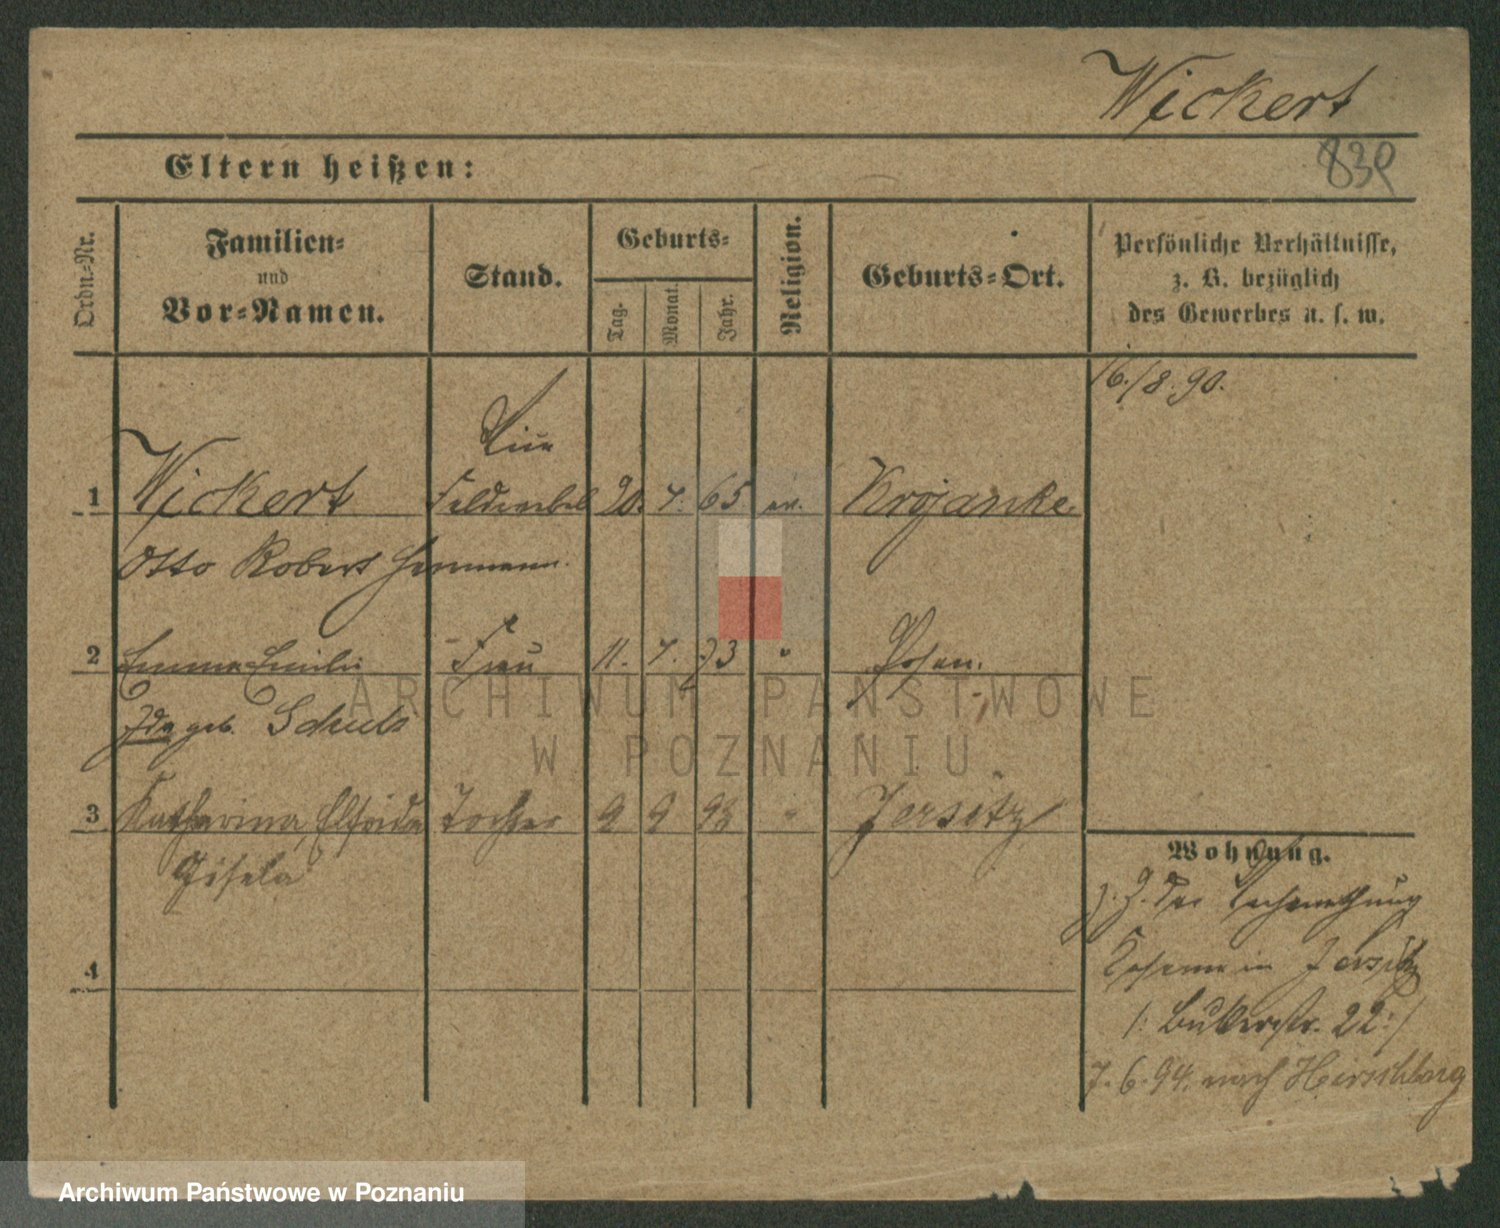 Wickert
839
Eltern heißen:
Ordn=Nr.
Familien=
und
Vor=Namen.
Stand.
Geburts=
Tag.
Monat.
Jahr.
Religion.
Geburts=Ort.
Persönliche Verhältnisse,
z. B. bezüglich
des Gewerbes u. s. w.
16./8.90.
1 Wickert Feldwebel 20. 7. 65 ev. Krojanke
Otto Robert Hermann
2 Emma Emilie Frau 11. 7. 73 " Posen.
Ida geb. Schulz
3 Katharina Elfrida Tochter 9 9 93 " Jersitz
Gisela
4
Wohnung.
in Jersitz
/: Bukerstr. 22 :/
7.6.94. nach Hirschberg
ARCHIWUM PAŃSTWOWE
W POZNANIU
Archiwum Państwowe w Poznaniu